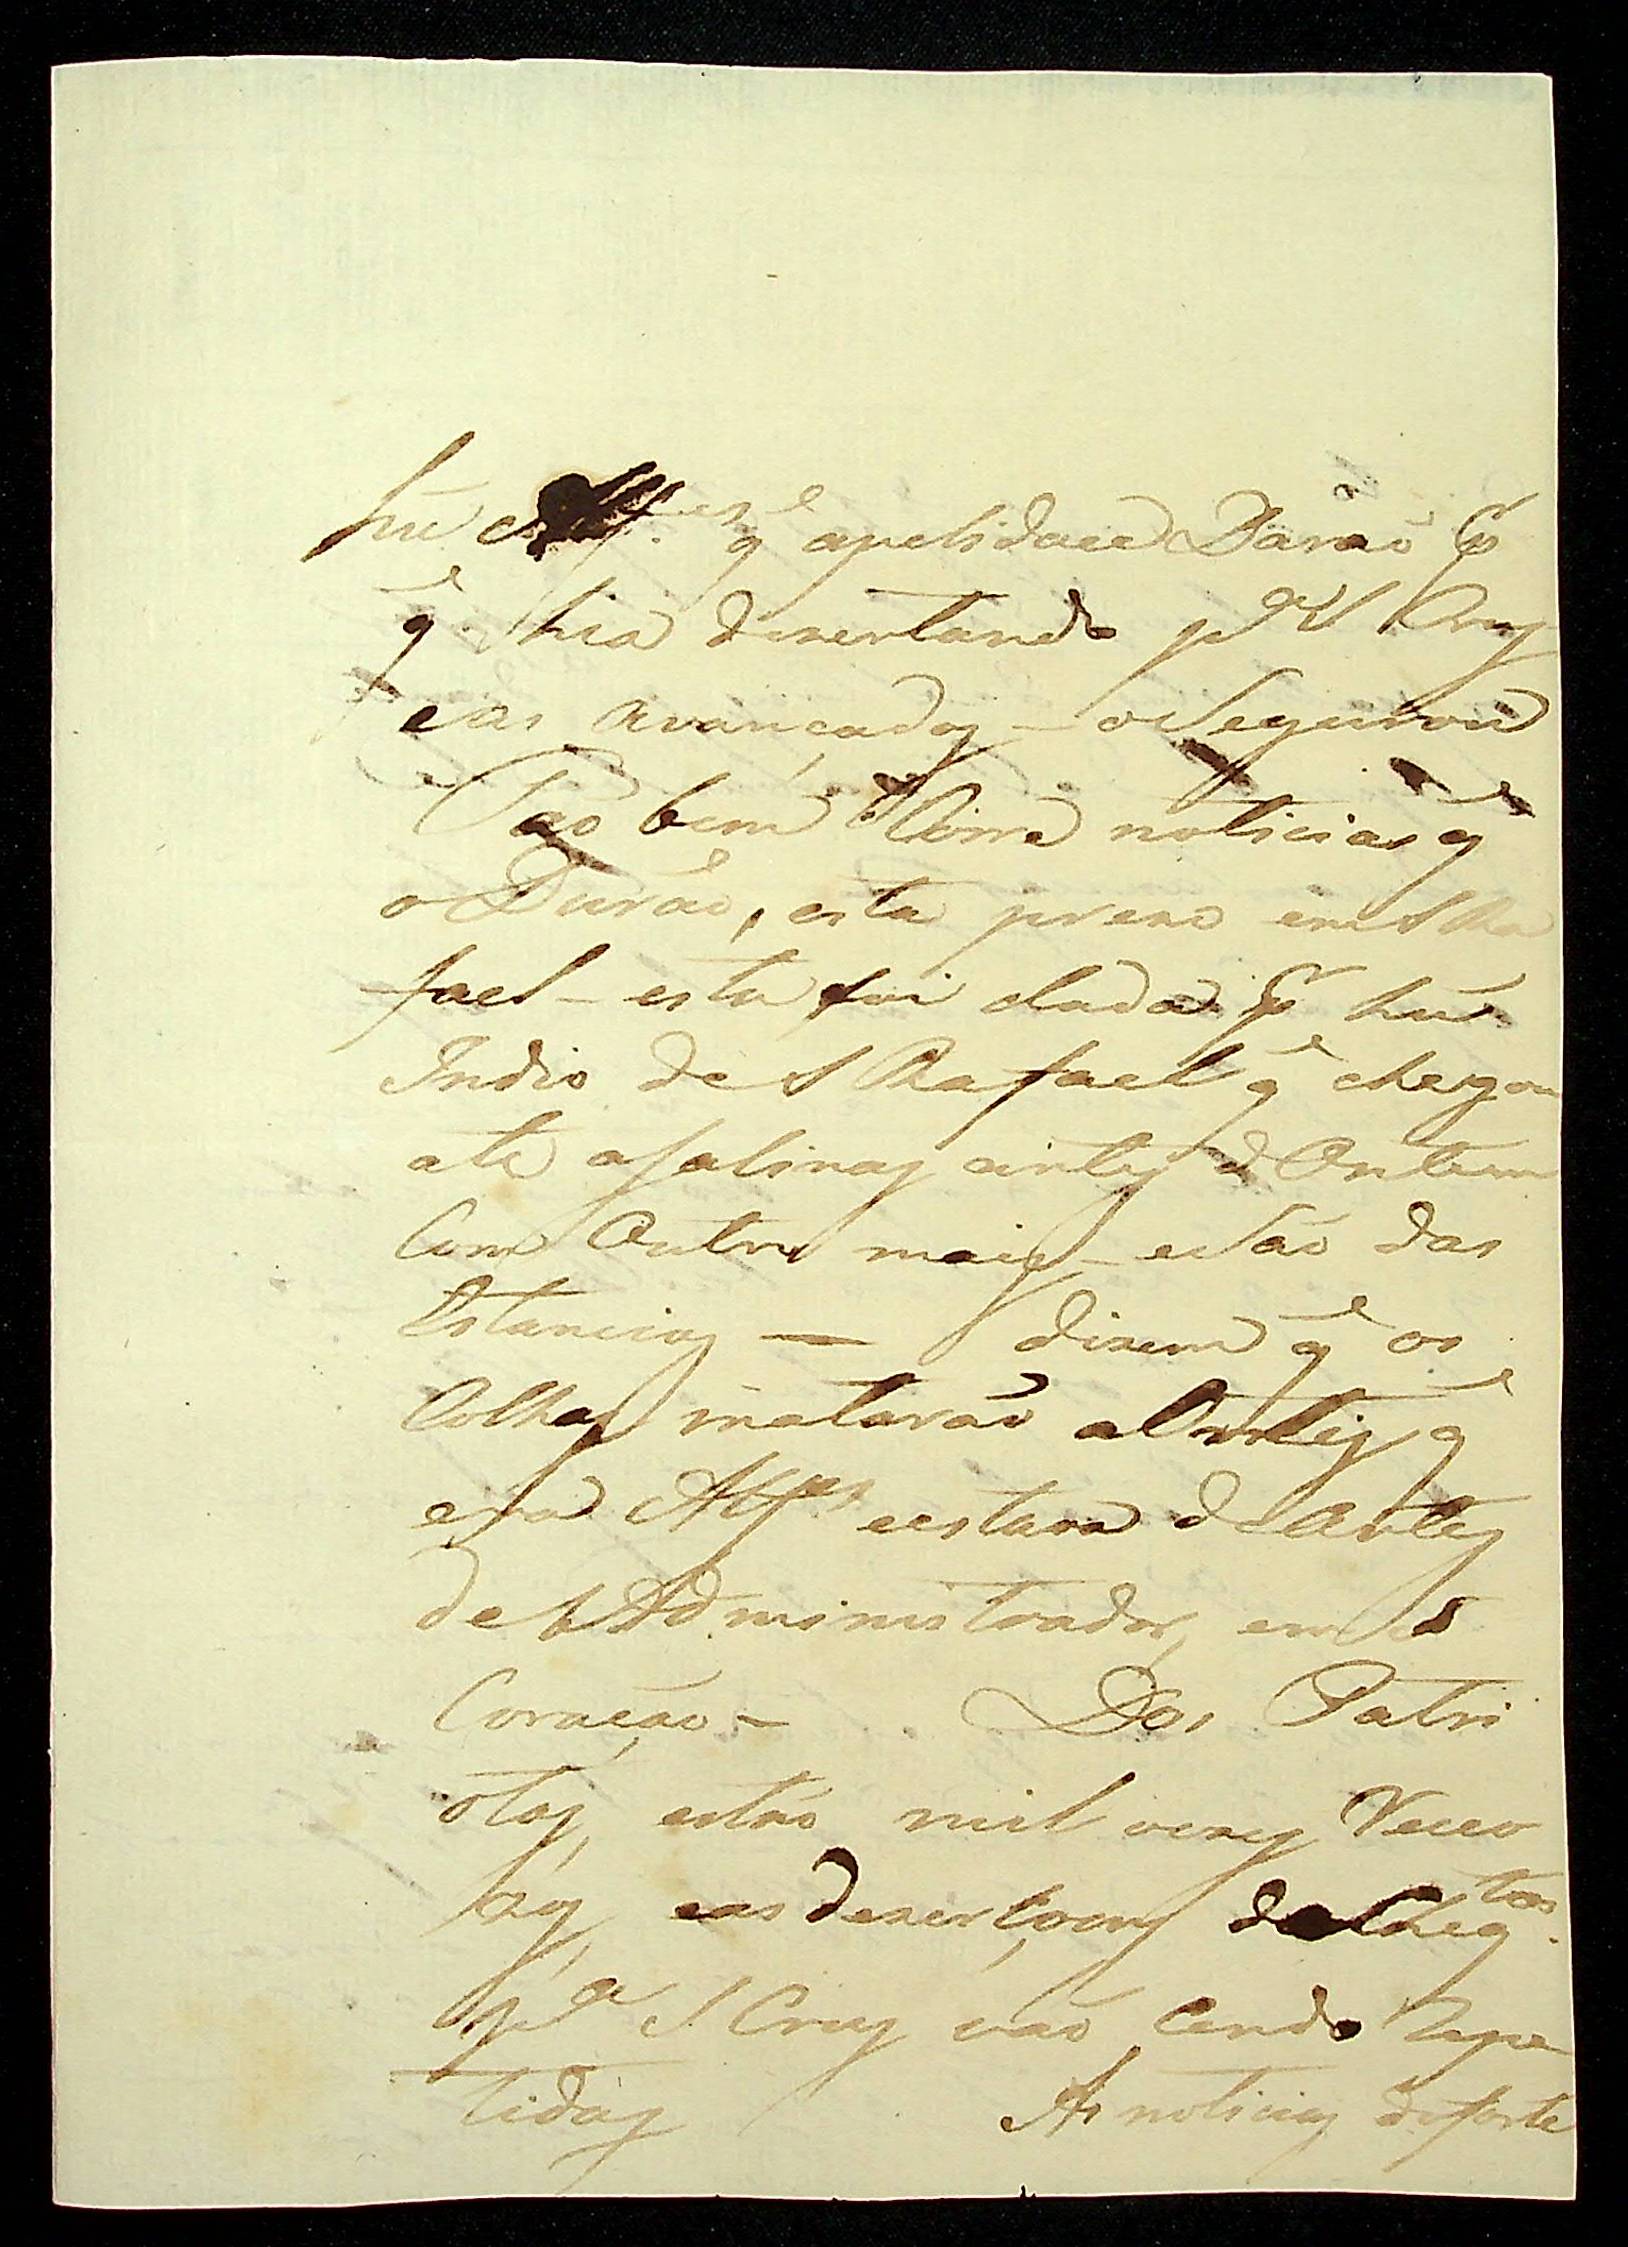 hũ Alf.es q̃ apelidace Barão p̃
q̃ hia dezertando p.a S Cruz
eas avançadas – o Segurou
Tão bem Corre noticias q̃
o Durão, esta prezo em S Ra
fael – esta foi dada p̃ hũ
Indio de S Rafael q̃ chegou
ate asalinas antes d Ontem
Com Outros mais – e São das
Estancias — dizem q̃ os
Colhas matarão a Ortiz q̃
era Alf.es e estava de Antes
de Administrador, em S
Coração – Dos Patri
otas estão mil vezes Receo
zos, eas dezerçoens
p.a S Cruz vão Cendo Repe
tidas As noticias desorte